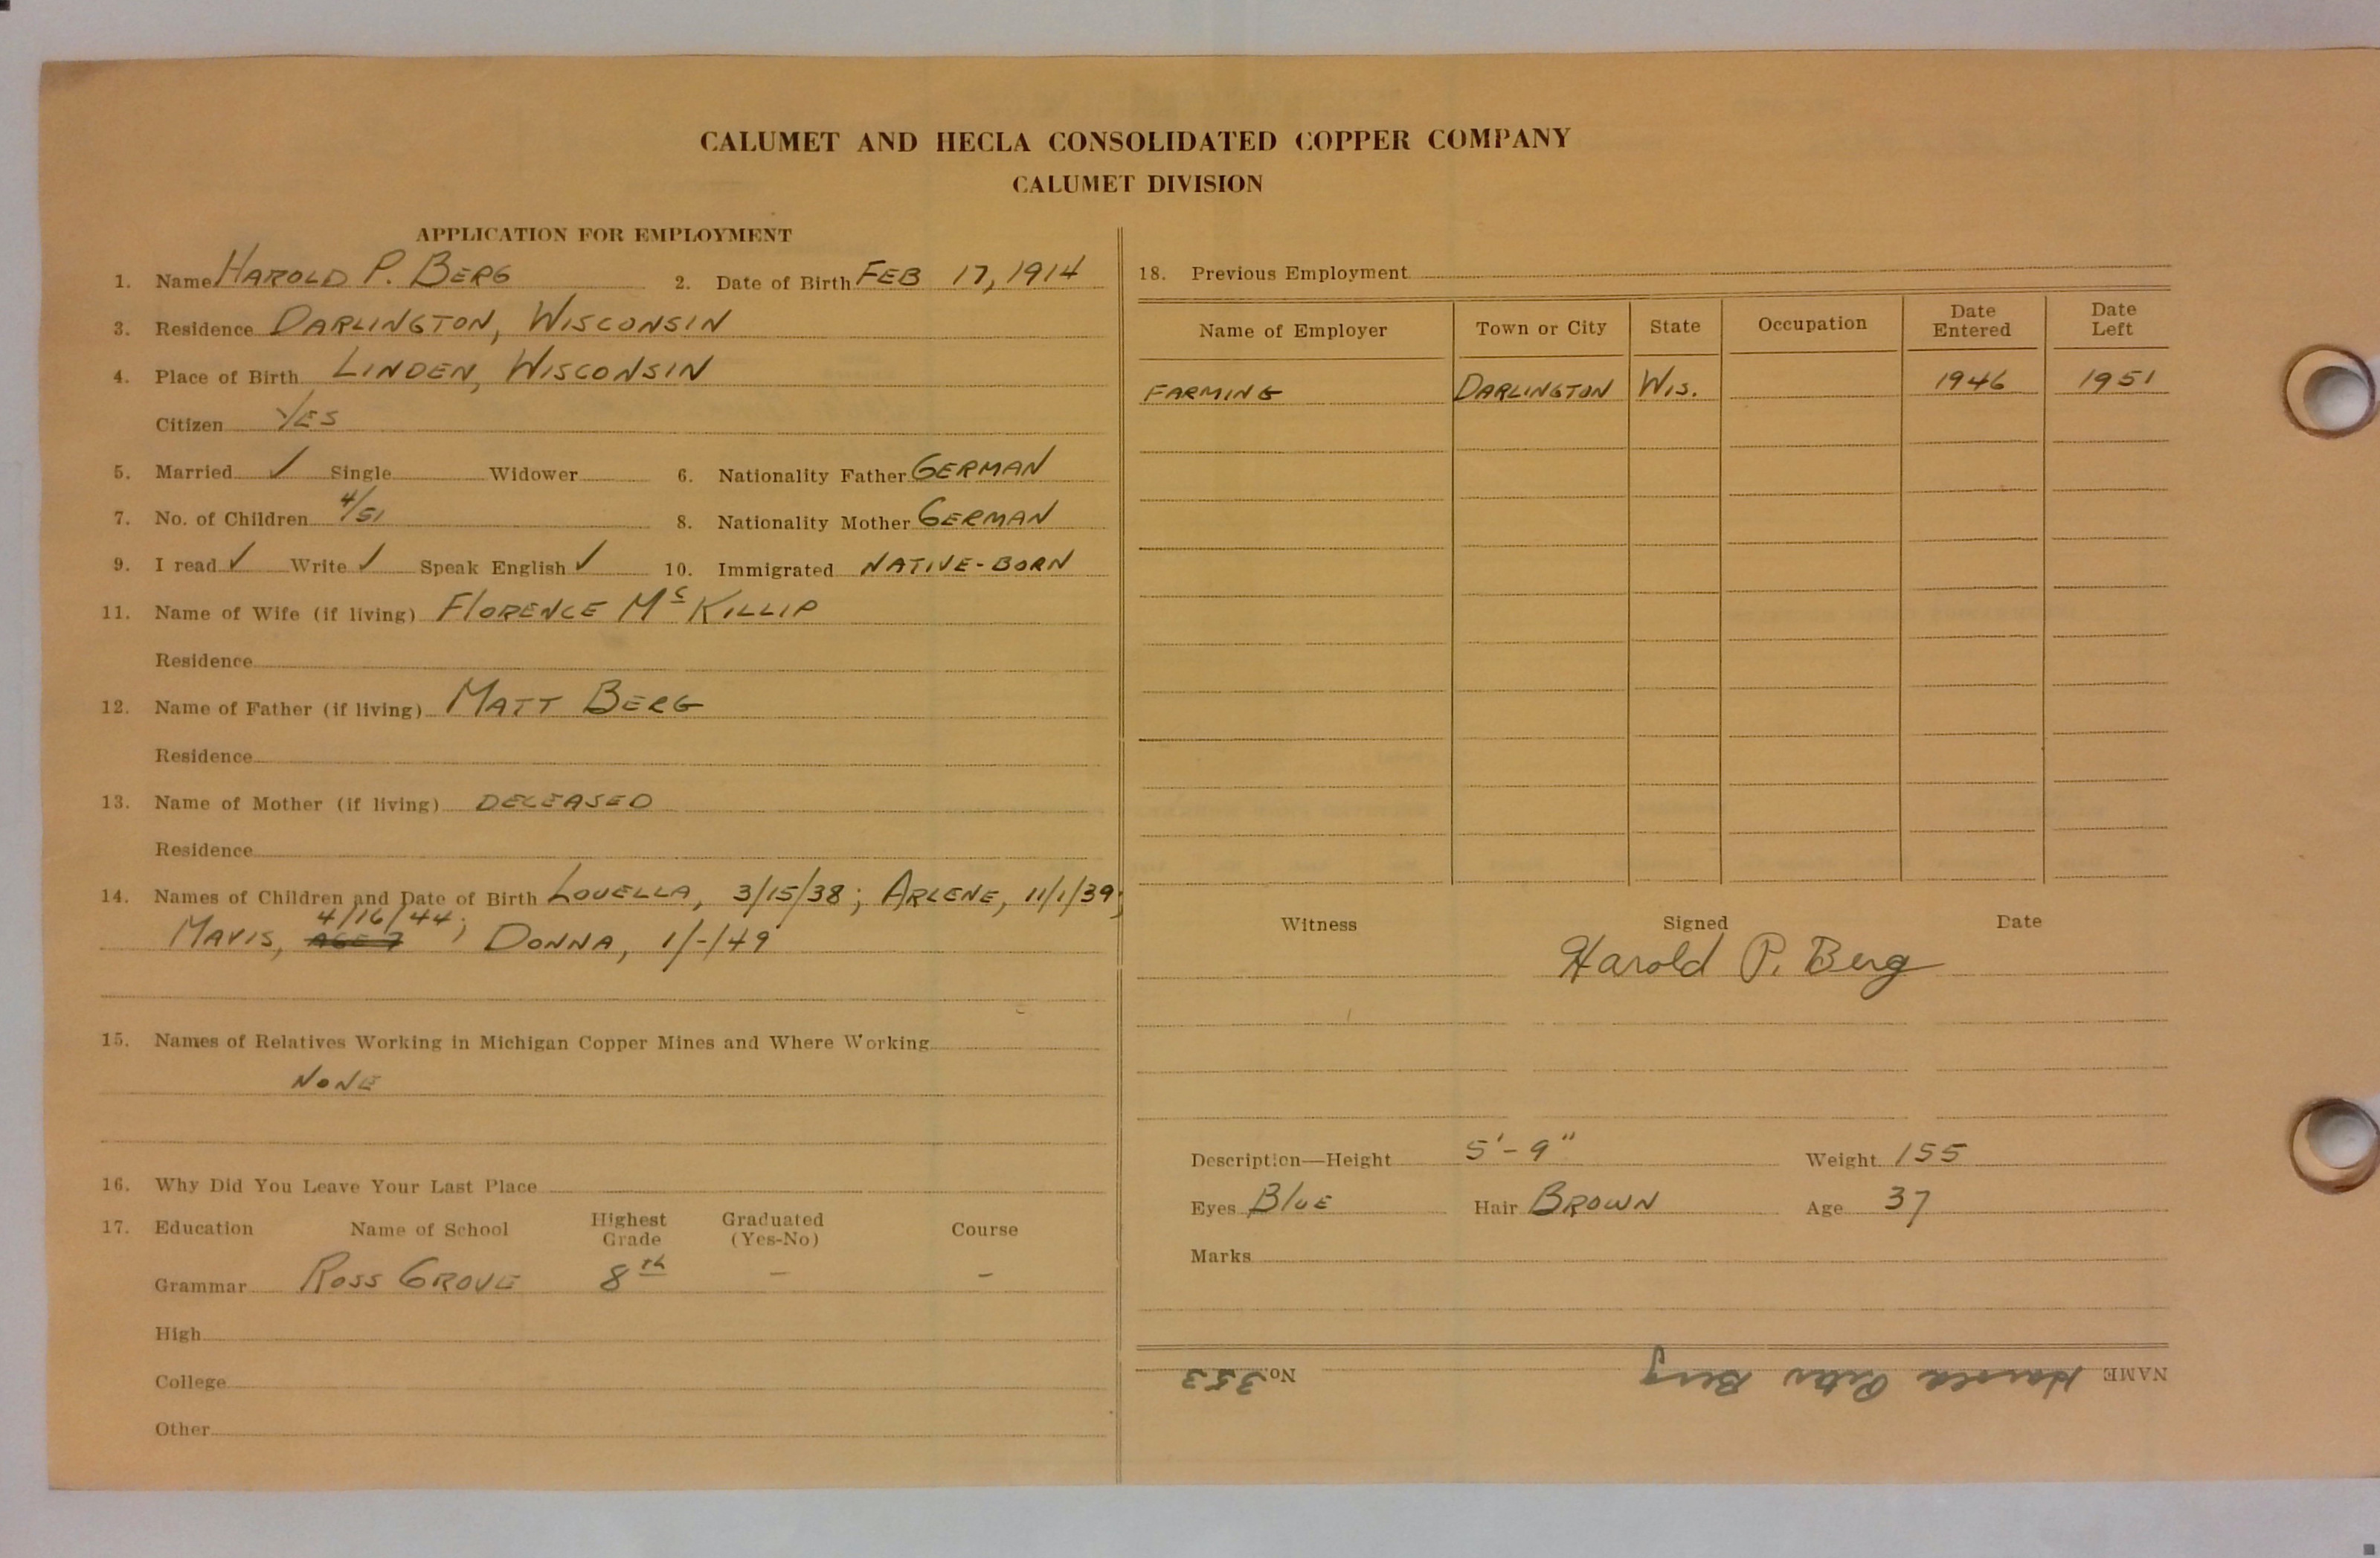 CALUMET AND HECLA CONSOLIDATED COPPER COMPANY
CALUMET DIVISION
APPLICATION FOR EMPLOYMENT
1. Name HAROLD P. BERG 2. Date of Birth FEB 17, 1914
3. Residence DARLINGTON, WISCONSIN
4. Place of Birth LINDEN, WISCONSIN
Citizen YES
5. Married ✓ Single Widower 6. Nationality Father GERMAN
7. No. of Children 4/51 8. Nationality Mother GERMAN
9. I read ✓ Write ✓ Speak English ✓ 10. Immigrated NATIVE-BORN
11. Name of Wife (if living) FLORENCE McKILLIP
Residence
12. Name of Father (if living) MATT BERG
Residence
13. Name of Mother (if living) DECEASED
Residence
14. Names of Children and Date of Birth LOUELLA, 3/15/38; ARLENE, 11/1/39;
MAVIS, AGE 7 4/16/44; DONNA, 1/-/49
15. Names of Relatives Working in Michigan Copper Mines and Where Working
NONE
16. Why Did You Leave Your Last Place
17. Education Name of School Highest Grade Graduated (Yes-No) Course
Grammar ROSS GROVE 8th - -
High
College
Other
18. Previous Employment
Name of Employer Town or City State Occupation Date Entered Date Left
FARMING DARLINGTON WIS. 1946 1951
Witness Signed Date
Harold P. Berg
Description—Height 5'-9" Weight 155
Eyes BLUE Hair BROWN Age 37
Marks
NAME Harold Peter Berg No. 353